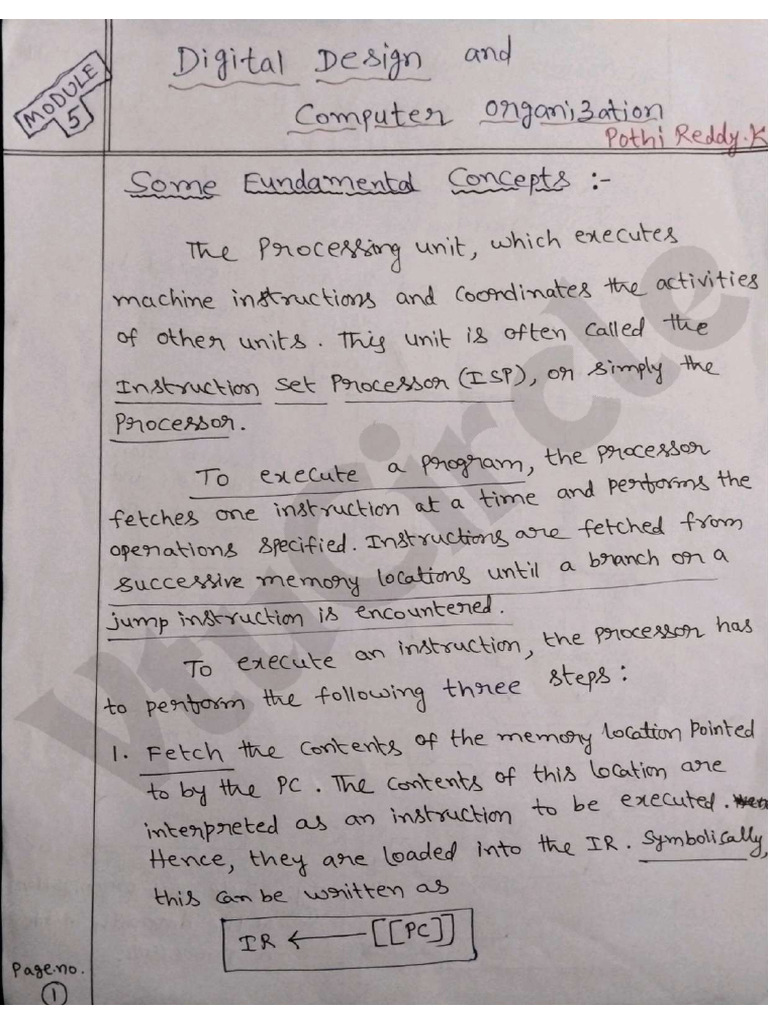 MODULE
5
Digital Design and
Computer Organization
Pothi Reddy.K
Some Fundamental Concepts :-
The Processing unit, which executes
machine instructions and coordinates the activities
of other units. This unit is often called the
Instruction Set Processor (ISP), or simply the
Processor.
To execute a program, the processor
fetches one instruction at a time and performs the
operations specified. Instructions are fetched from
successive memory locations until a branch or a
jump instruction is encountered.
To execute an instruction, the processor has
to perform the following three steps:
1. Fetch the contents of the memory location pointed
to by the PC. The contents of this location are
interpreted as an instruction to be executed.
Hence, they are loaded into the IR. Symbolically,
this can be written as
IR ← [[PC]]
Page.no.
1
VtuCircle